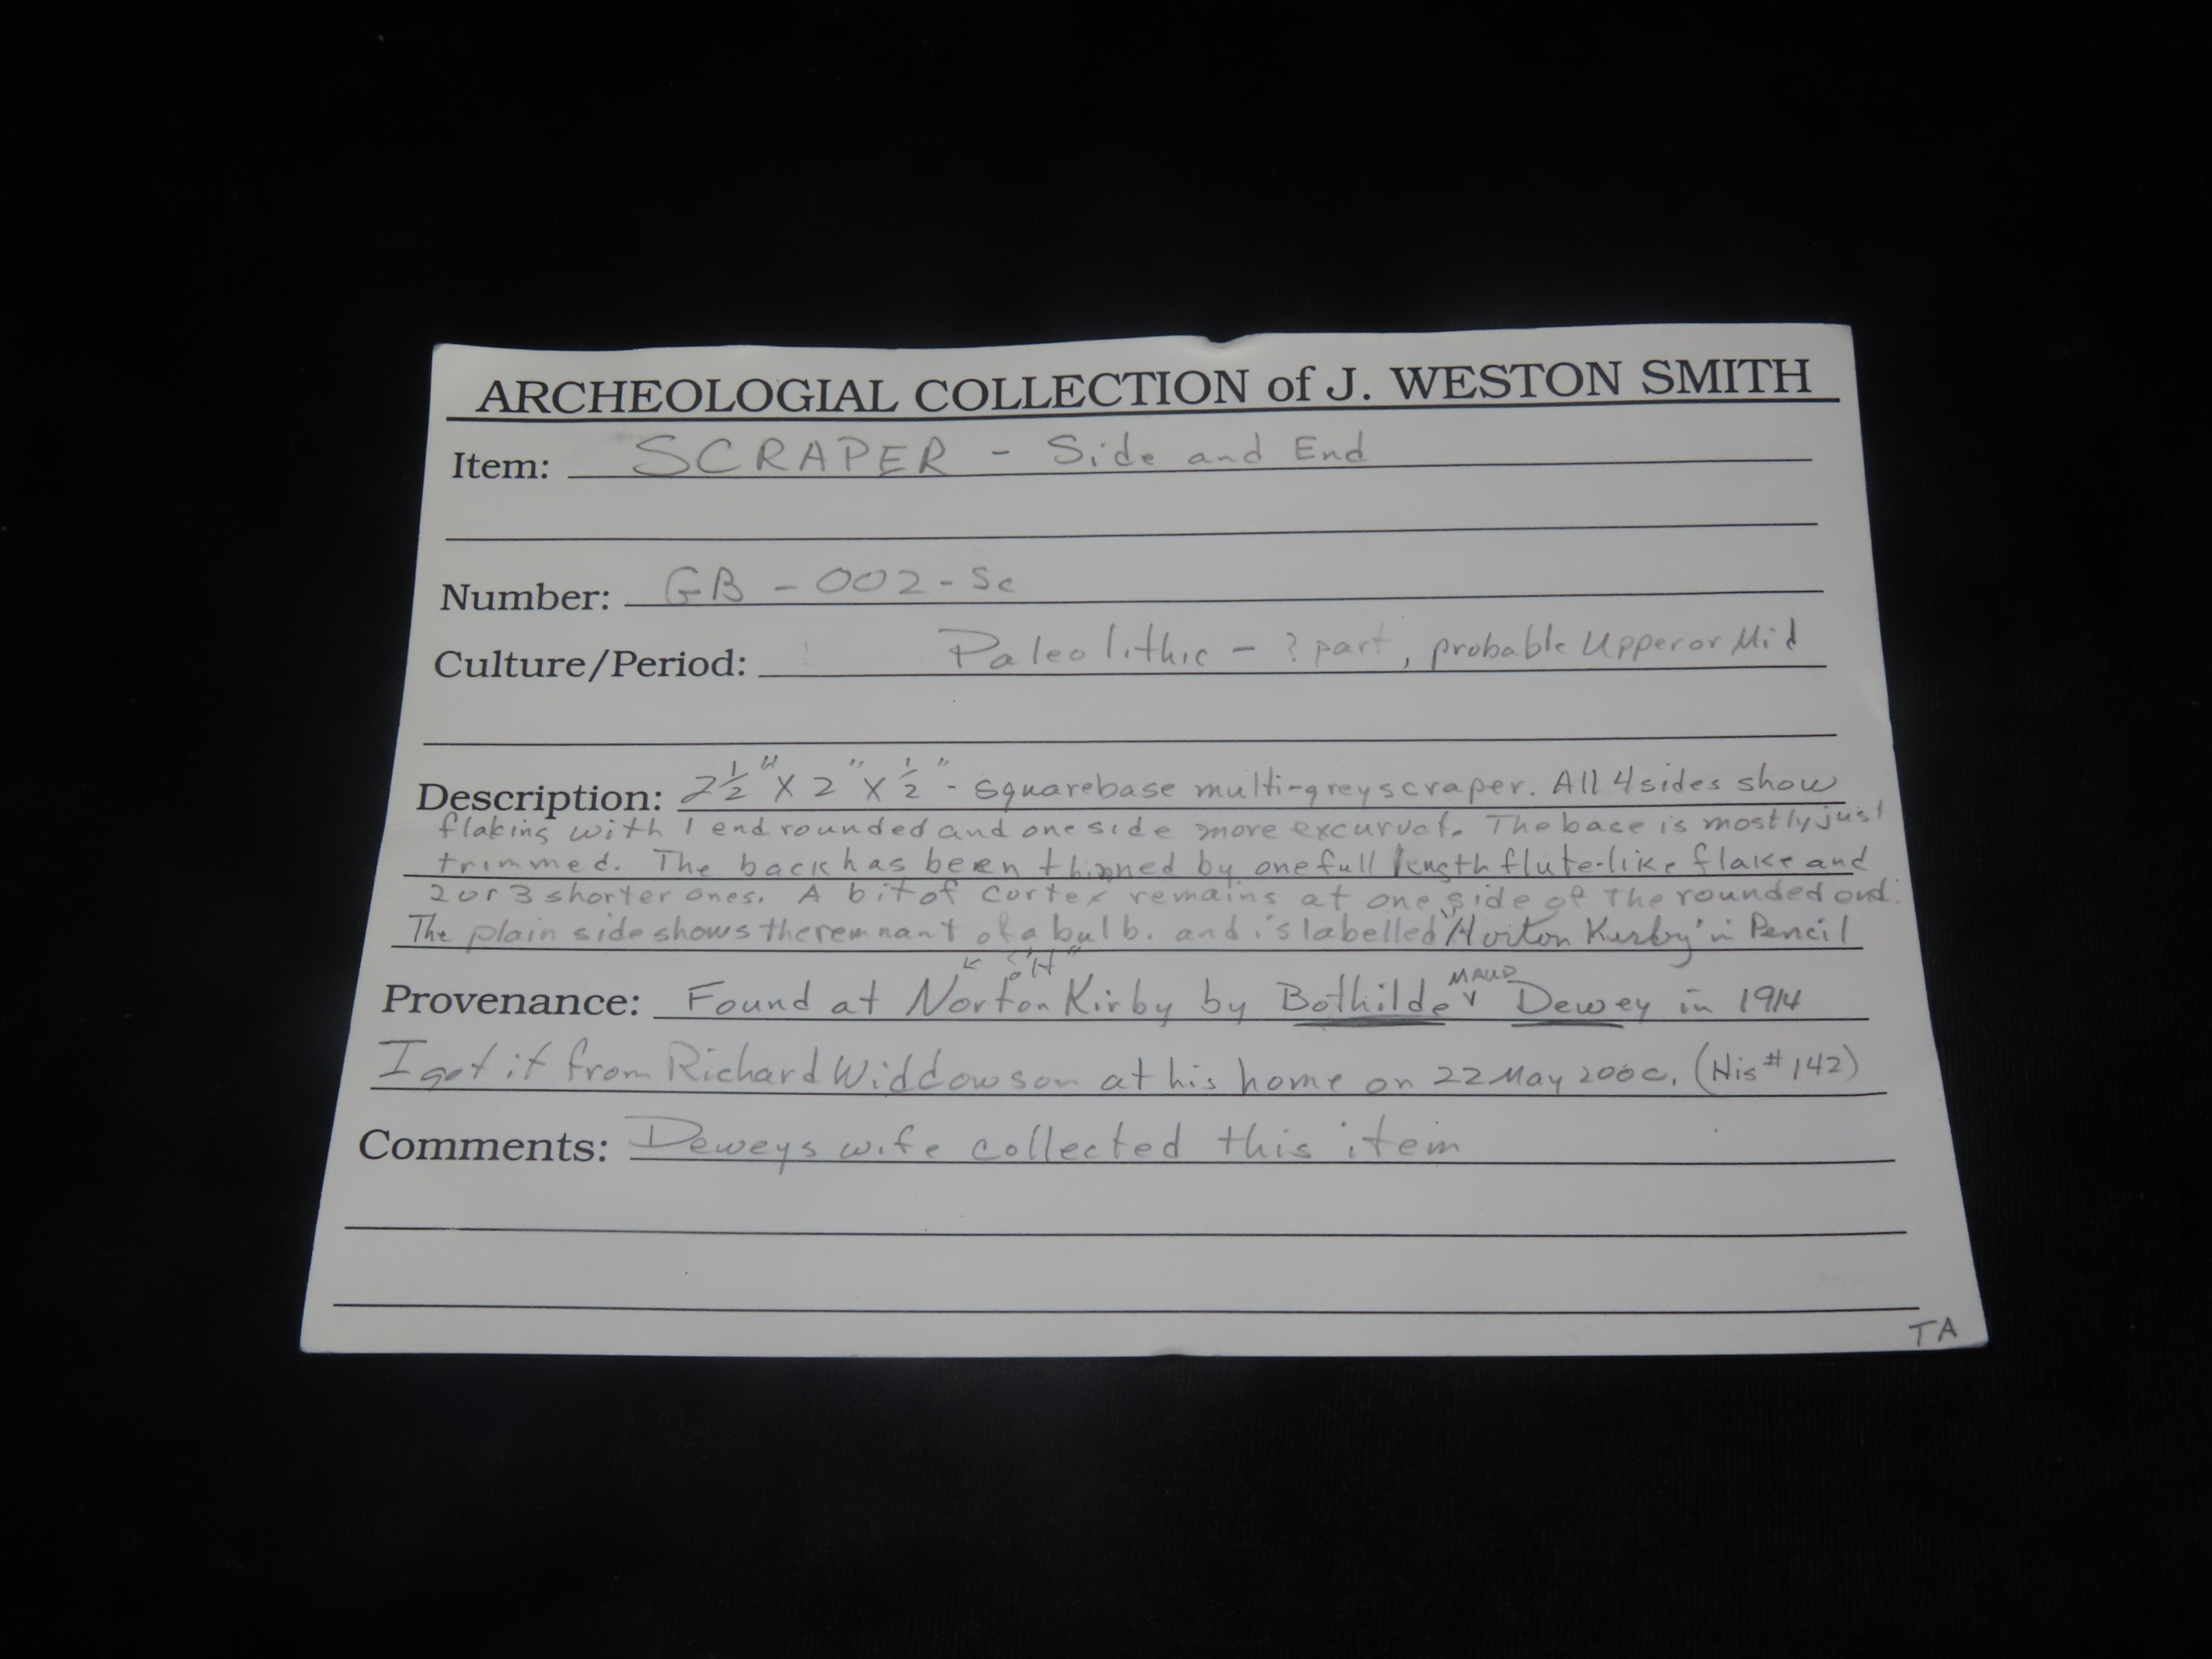 ARCHEOLOGIAL COLLECTION of J. WESTON SMITH
Item: SCRAPER - Side and End
Number: GB - 002 - Sc
Culture/Period: Paleolithic - ? part, probable Upper or Mid
Description: 2 1/2" X 2" X 1/2" - squarebase multi-grey scraper. All 4 sides show
flaking with 1 end rounded and one side more excurvat. The base is mostly just
trimmed. The back has been thinned by one full length flute-like flake and
2 or 3 shorter ones. A bit of cortex remains at one side of the rounded end.
The plain side shows the remnant of a bulb. and is labelled "Horton Kirby" in Pencil
"H"
Provenance: Found at Norton Kirby by Bothilde MAUD Dewey in 1914
I got it from Richard Widdowson at his home on 22 May (His # 142)
Comments: Deweys wife collected this item
TA